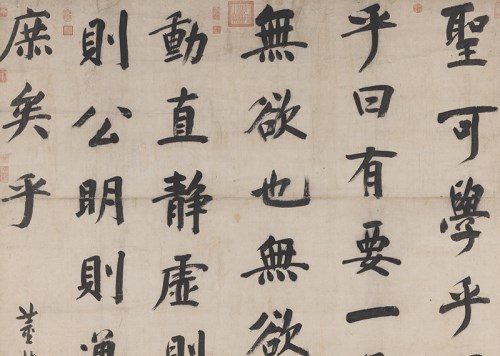 聖可學乎
乎曰有要一
無欲也無欲
動直靜虛則
則公明則通
庶矣乎
董